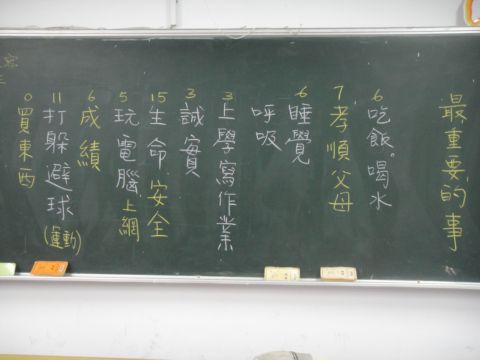 最重要的事
6 吃飯。喝水
7 孝順父母
6 睡覺
呼吸
3 上學寫作業
3 誠實
15 生命安全
5 玩電腦上網
6 成績
11 打躲避球(運動)
0 買東西